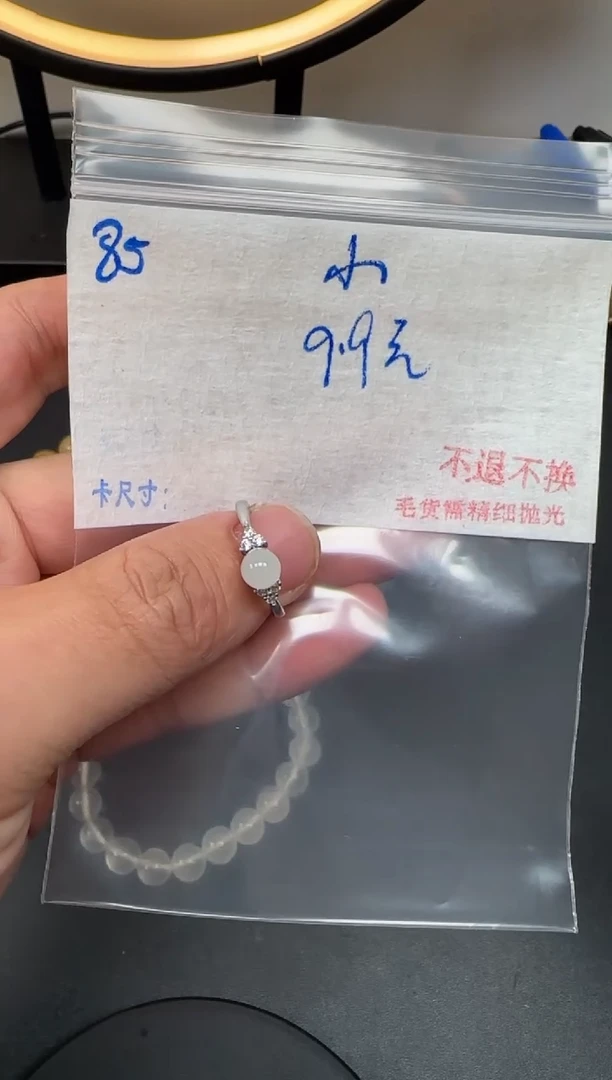 35
小
9.9元
不退不换
卡尺寸:
毛货需精细抛光